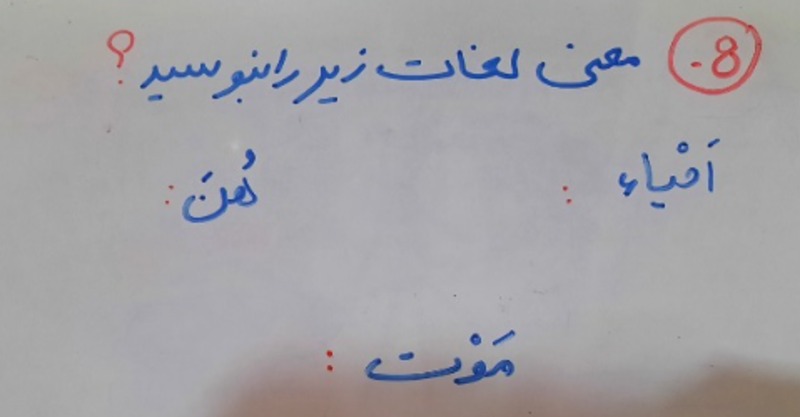 8- معنی لغات زیر را بنویسید؟
اَحْیاء : هُنَ :
مَوْت :